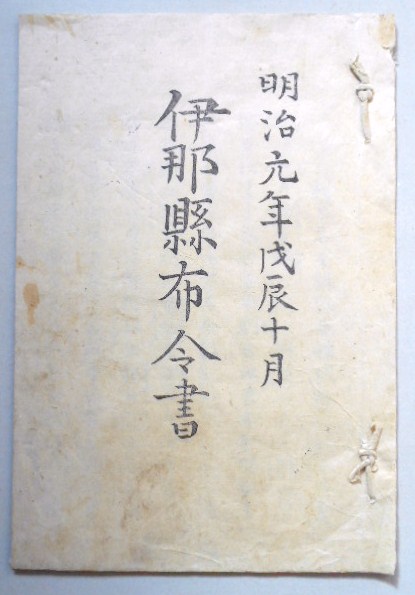 明治元年戊辰十月
伊那縣布令書